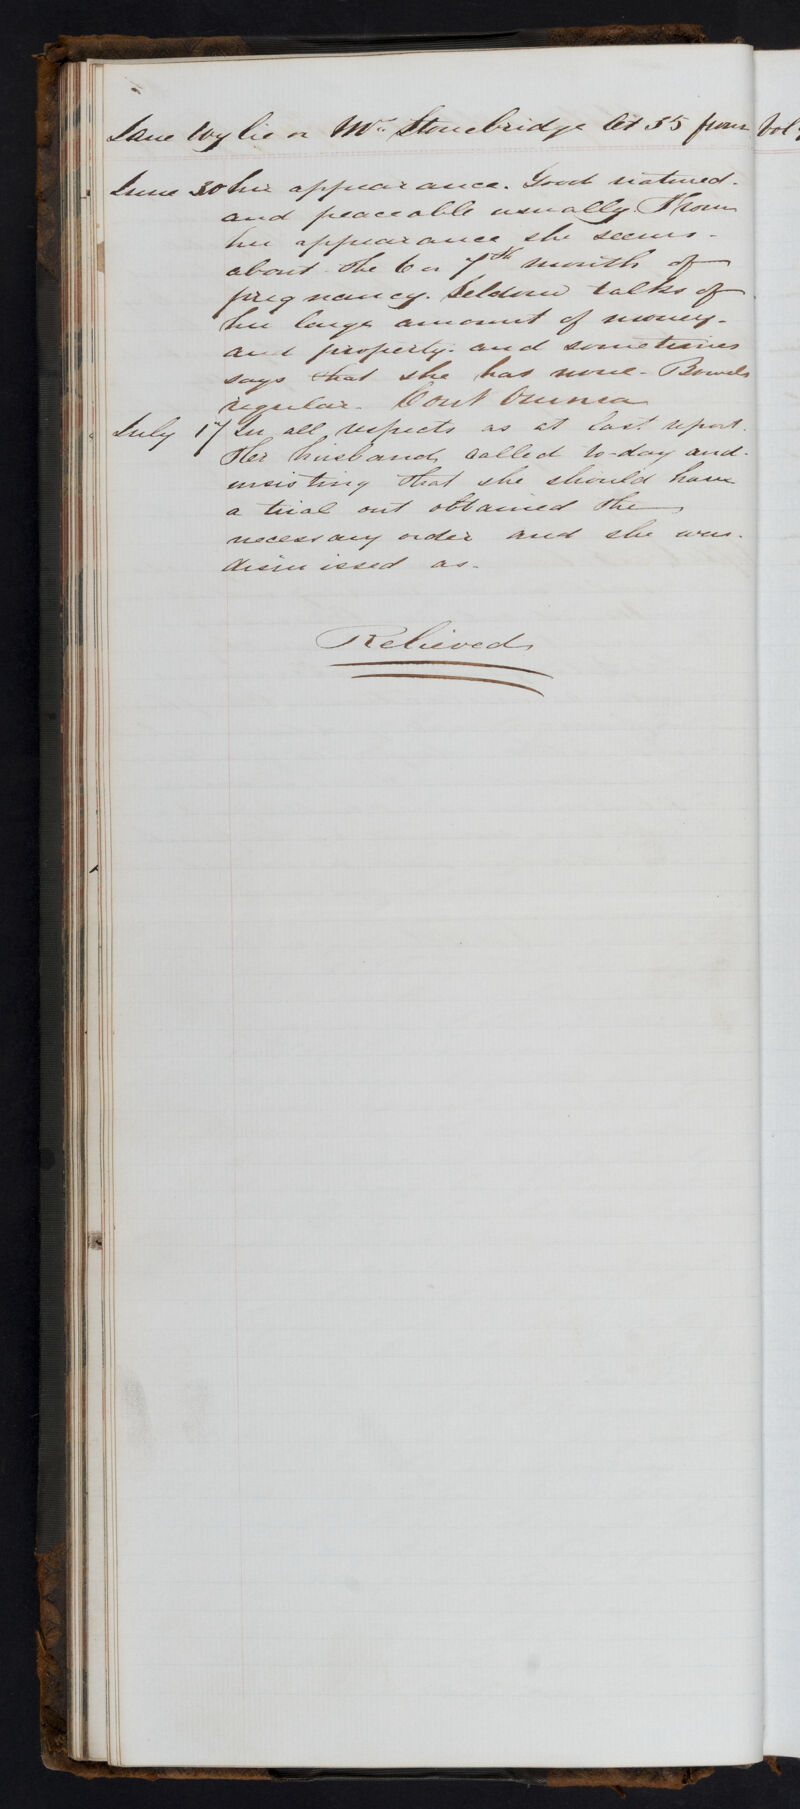 Jane Wylie or Mrs. Stonebridge Cit 55 from Vol
June 30 her appearance. Good natured.
and peaceable usually. From
her appearance she seems.
about the 6 or 7th month of
pregnancy. Seldom talks of
her large amount of money.
and property. and sometimes
says that she has none. Bowels
regular. Cont Omnia
July 17 In all respects as at last report.
Her husband called to-day and.
insisting that she should have
a trial out obtained the
necessary order and she was.
dismissed as.
Relieved